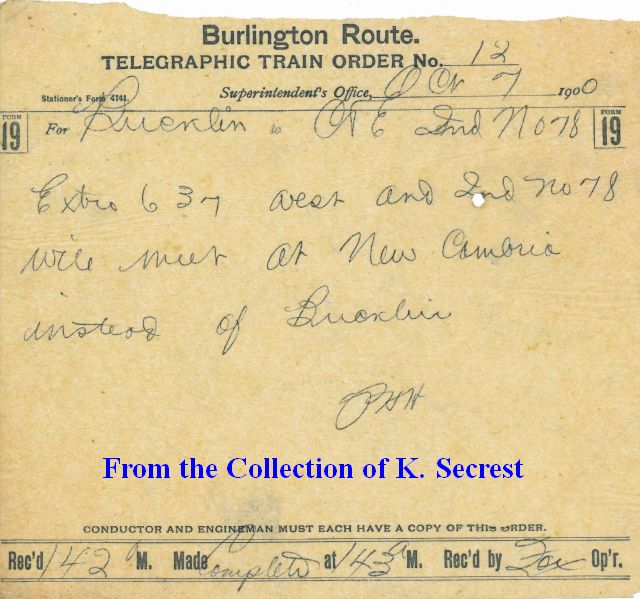 Burlington Route.
TELEGRAPHIC TRAIN ORDER No. 12
Superintendent's Office, Oct 7 1900
Stationer's Form 4141.
FORM 19 For Bucklin to C&E 2nd No 78 FORM 19
Extra 637 west and 2nd No 78
will meet at New Cambria
instead of Bucklin
From the Collection of K. Secrest
CONDUCTOR AND ENGINEMAN MUST EACH HAVE A COPY OF THIS ORDER.
Rec'd 142 A M. Made Complete at 143 A M. Rec'd by Op'r.